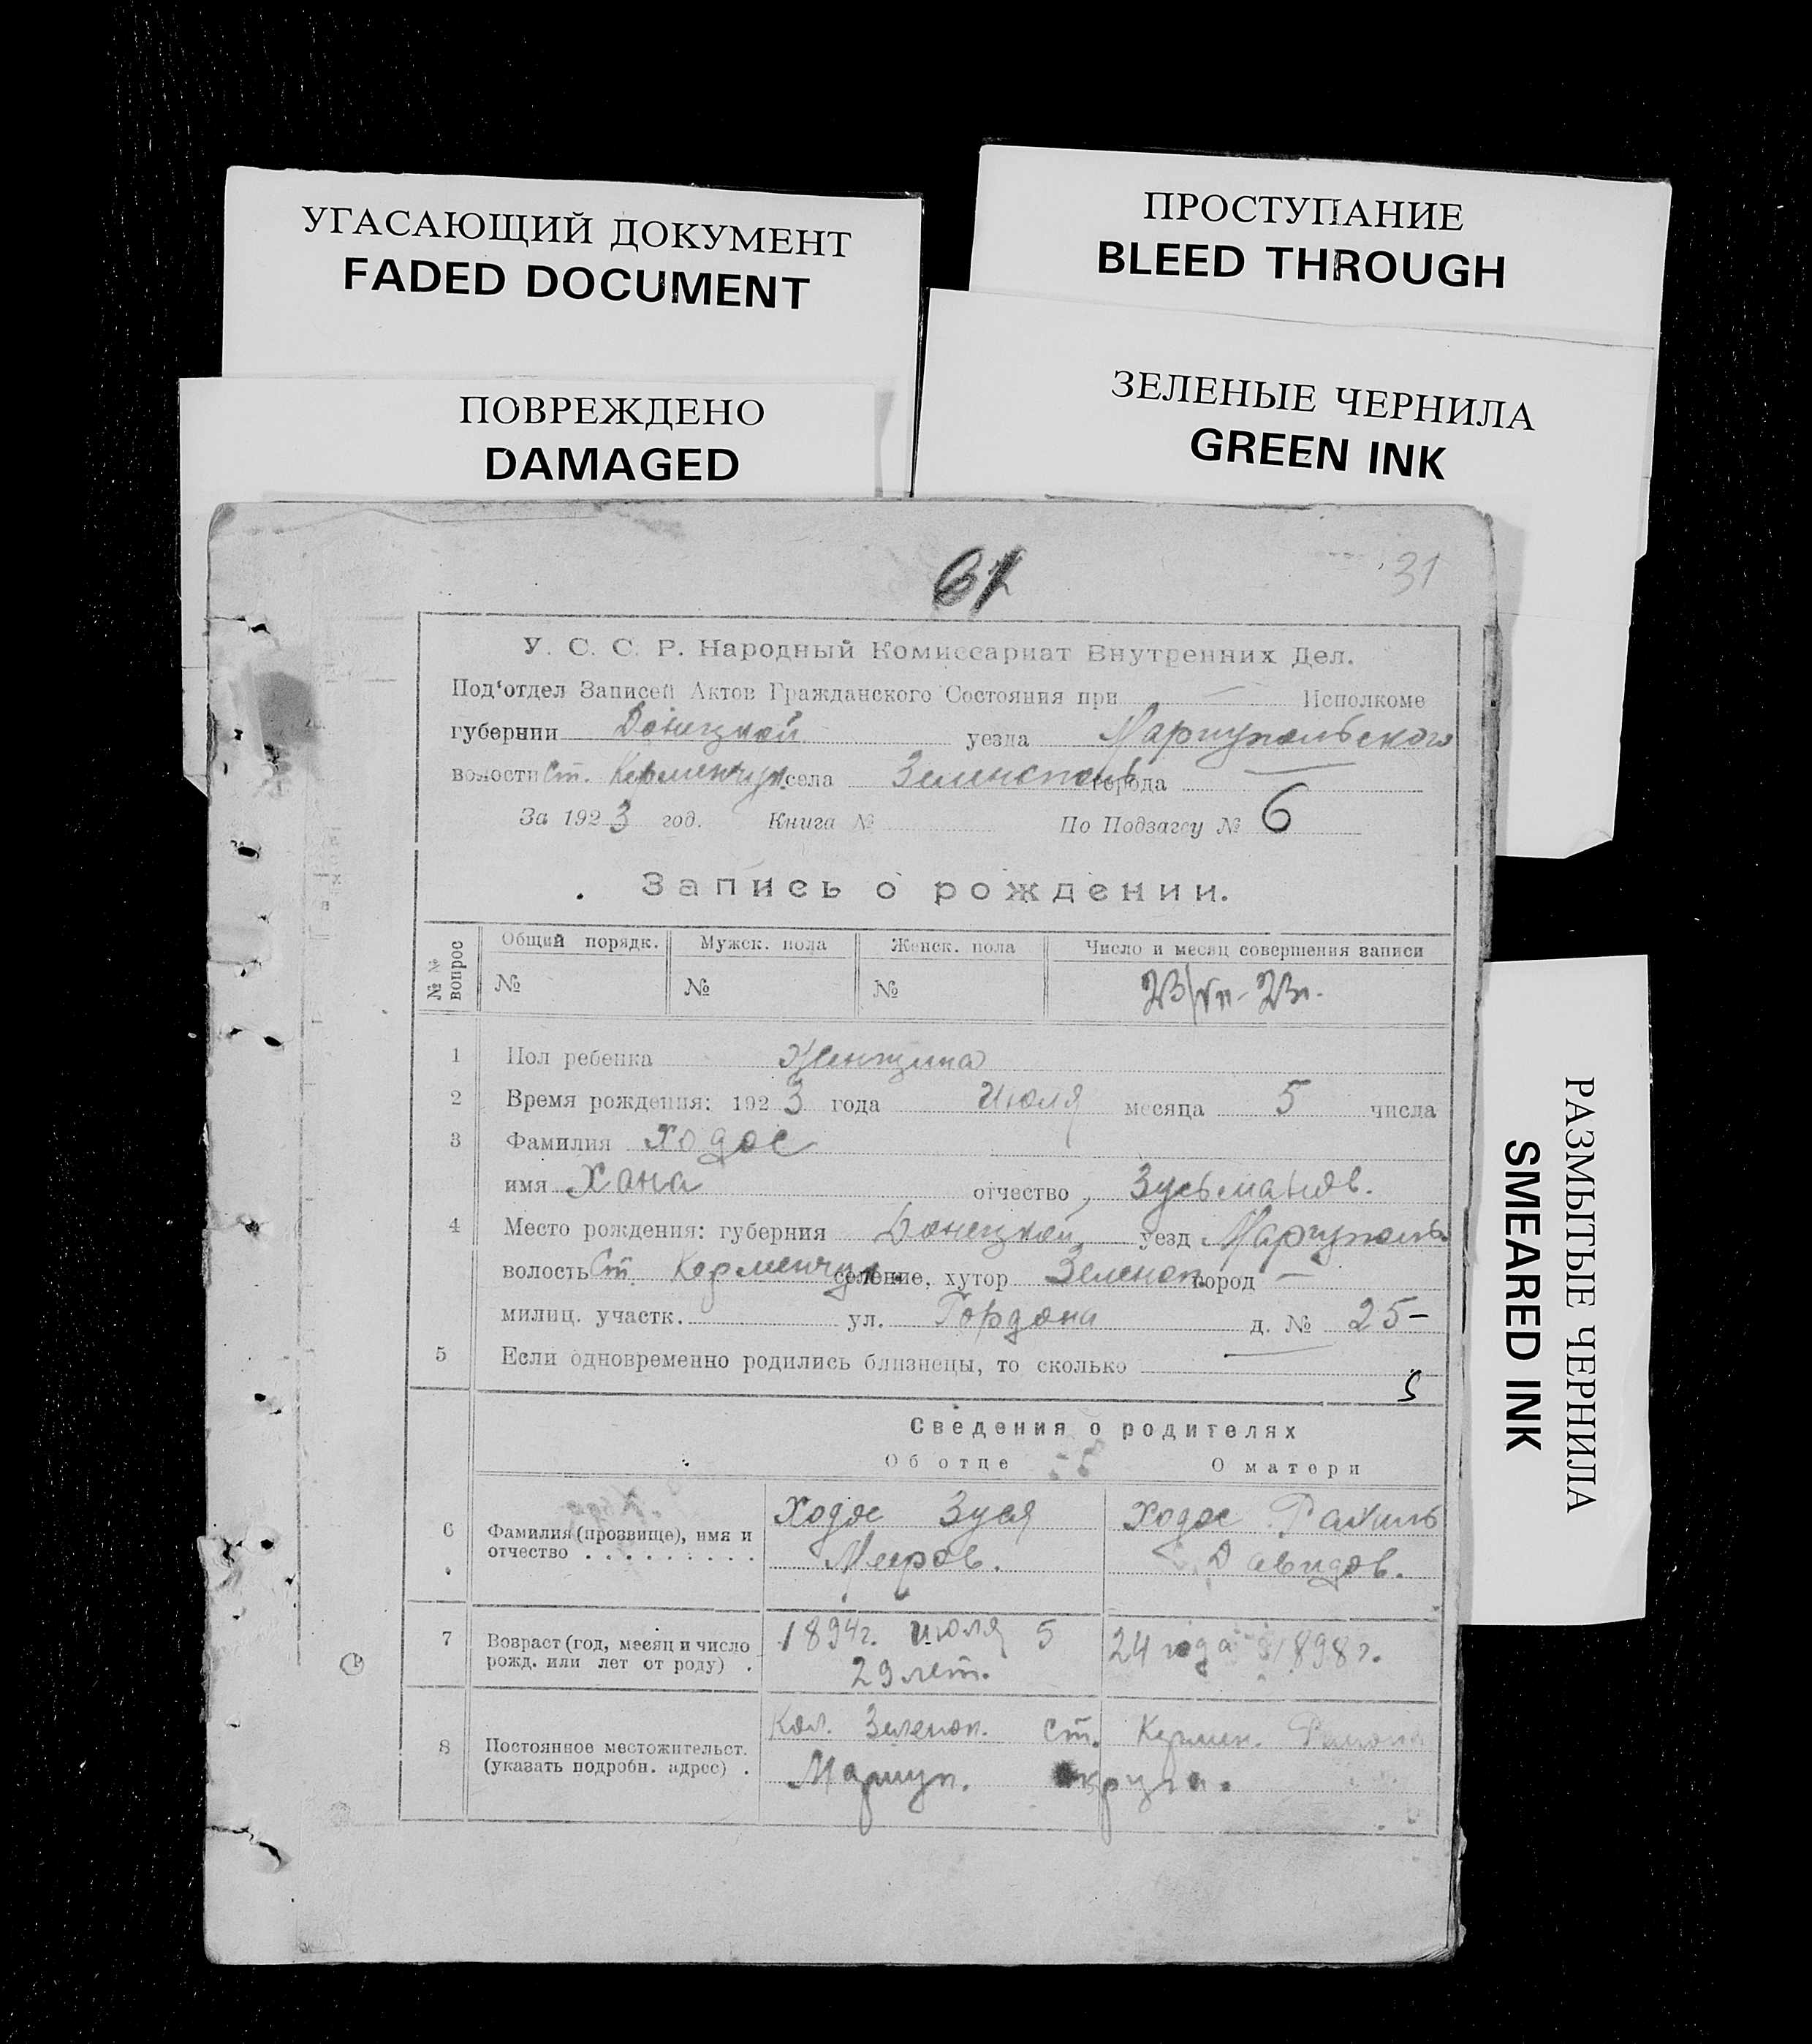 УГАСАЮЩИЙ ДОКУМЕНТ
FADED DOCUMENT
ПРОСТУПАНИЕ
BLEED THROUGH
ПОВРЕЖДЕНО
DAMAGED
ЗЕЛЕНЫЕ ЧЕРНИЛА
GREEN INK
31
У. С. С. Р. Народный Комиссариат Внутренних Дел.
Под'отдел Записей Актов Гражданского Состояния при — Исполкоме
губернии Донецкой уезда Мариупольского
волости Ст. Керменчук. села Зеленополь города —
За 1923 год. Книга № По Подзагсу № 6
Запись о рождении.
№№ вопрос Общий порядк. Мужск. пола Женск. пола Число и месяц совершения записи
№ № № 23/VII-23г.
1 Пол ребенка Женщина
2 Время рождения: 1923 года Июля месяца 5 числа
3 Фамилия Ходос
имя Хана отчество Зусьманов.
4 Место рождения: губерния Донецкой, уезд Мариуполь.
волость Ст. Керменчук. селение, хутор Зеленоп. город —
милиц. участк. ул. Гордона д. № 25-
5 Если одновременно родились близнецы, то сколько —
Сведения о родителях
Об отце О матери
6 Фамилия (прозвище), имя и Ходос Зуся Ходос Рахиль
отчество . . . . . . . . . Мееров. Давидов.
7 Возраст (год, месяц и число 1894г. июля 5 24 года 1898г.
рожд. или лет от роду) . 29 лет.
8 Постоянное местожительст. Кол. Зеленоп. Ст. Кермен. Района
(указать подробн. адрес) . Мариуп. округа.
РАЗМЫТЫЕ ЧЕРНИЛА
SMEARED INK